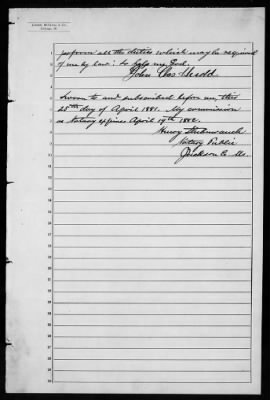 perform all the duties which may be required
of me by law; So help me God.
John Chas Shedd
Sworn to and subscribed before me, this
25th day of April 1881. My commission
as Notary expires April 19th 1882.
Henry
Notary Public
Jackson Co Mo.